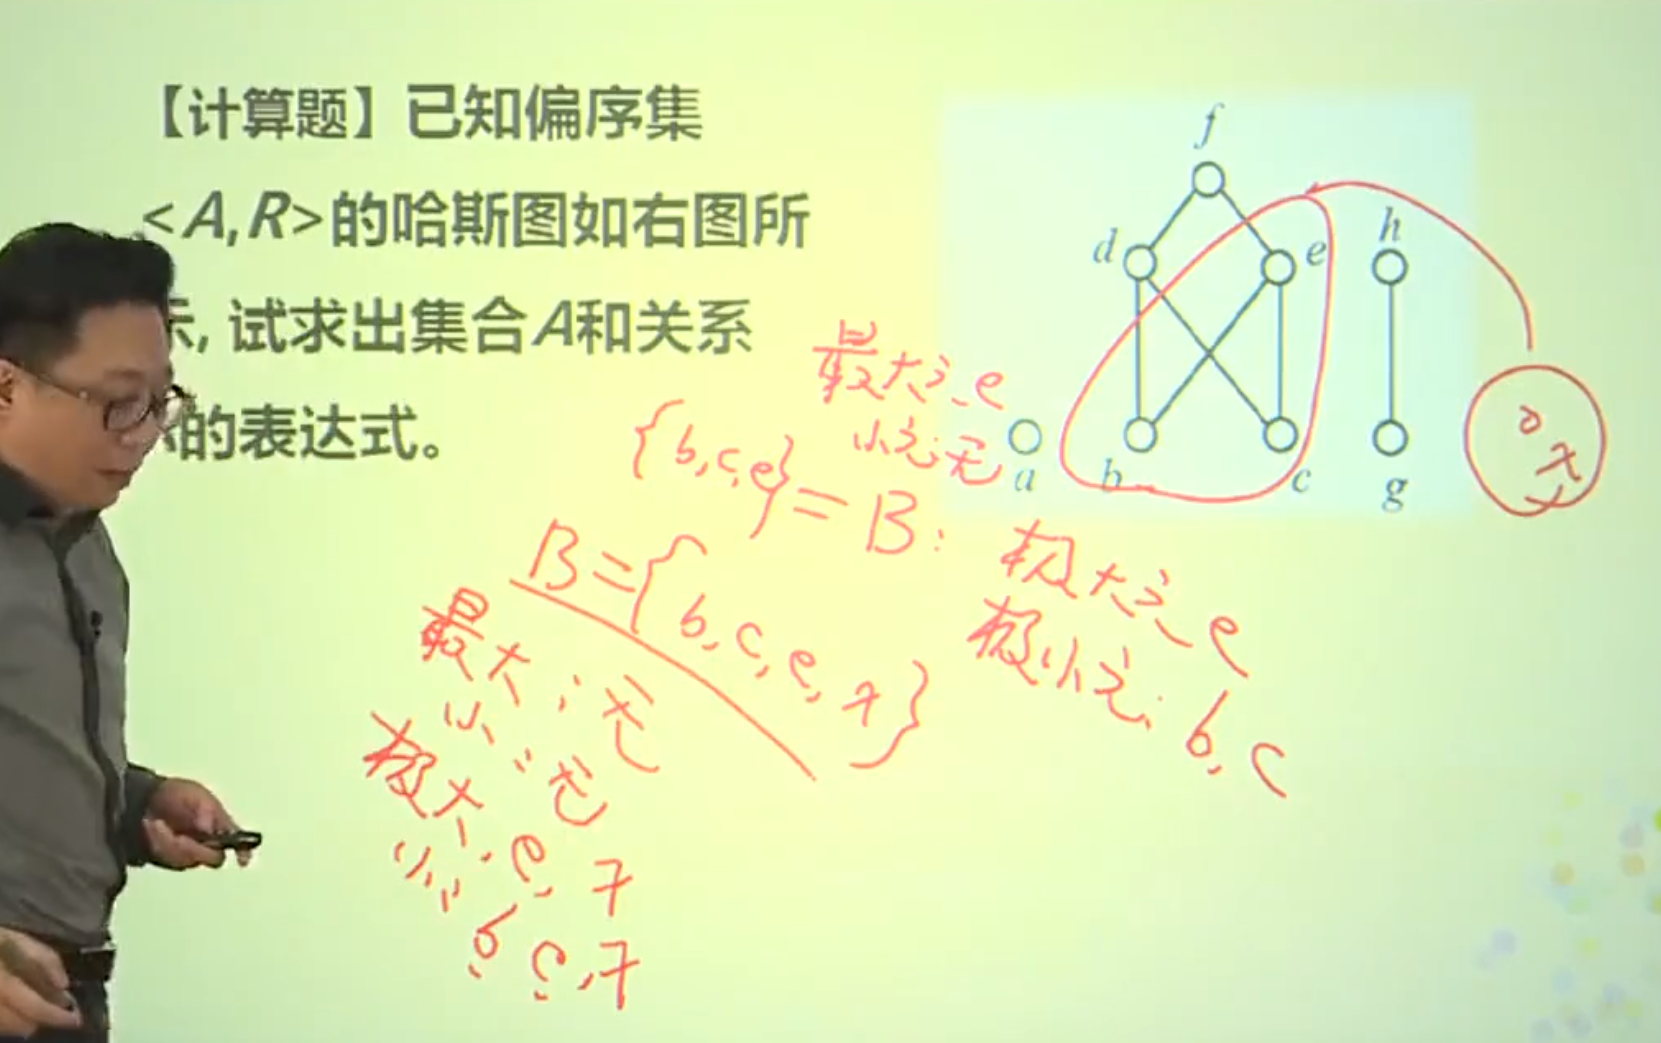 【计算题】已知偏序集
<A,R>的哈斯图如右图所
示, 试求出集合A和关系
的表达式。
f
d
e
h
a
b
c
g
最大元 e
小元:无
{b,c,e} = B:
极大元 e
极小元: b, c
B={b,c,e,7}
最大:无
小:无
极大: e, 7
小: b, c, 7